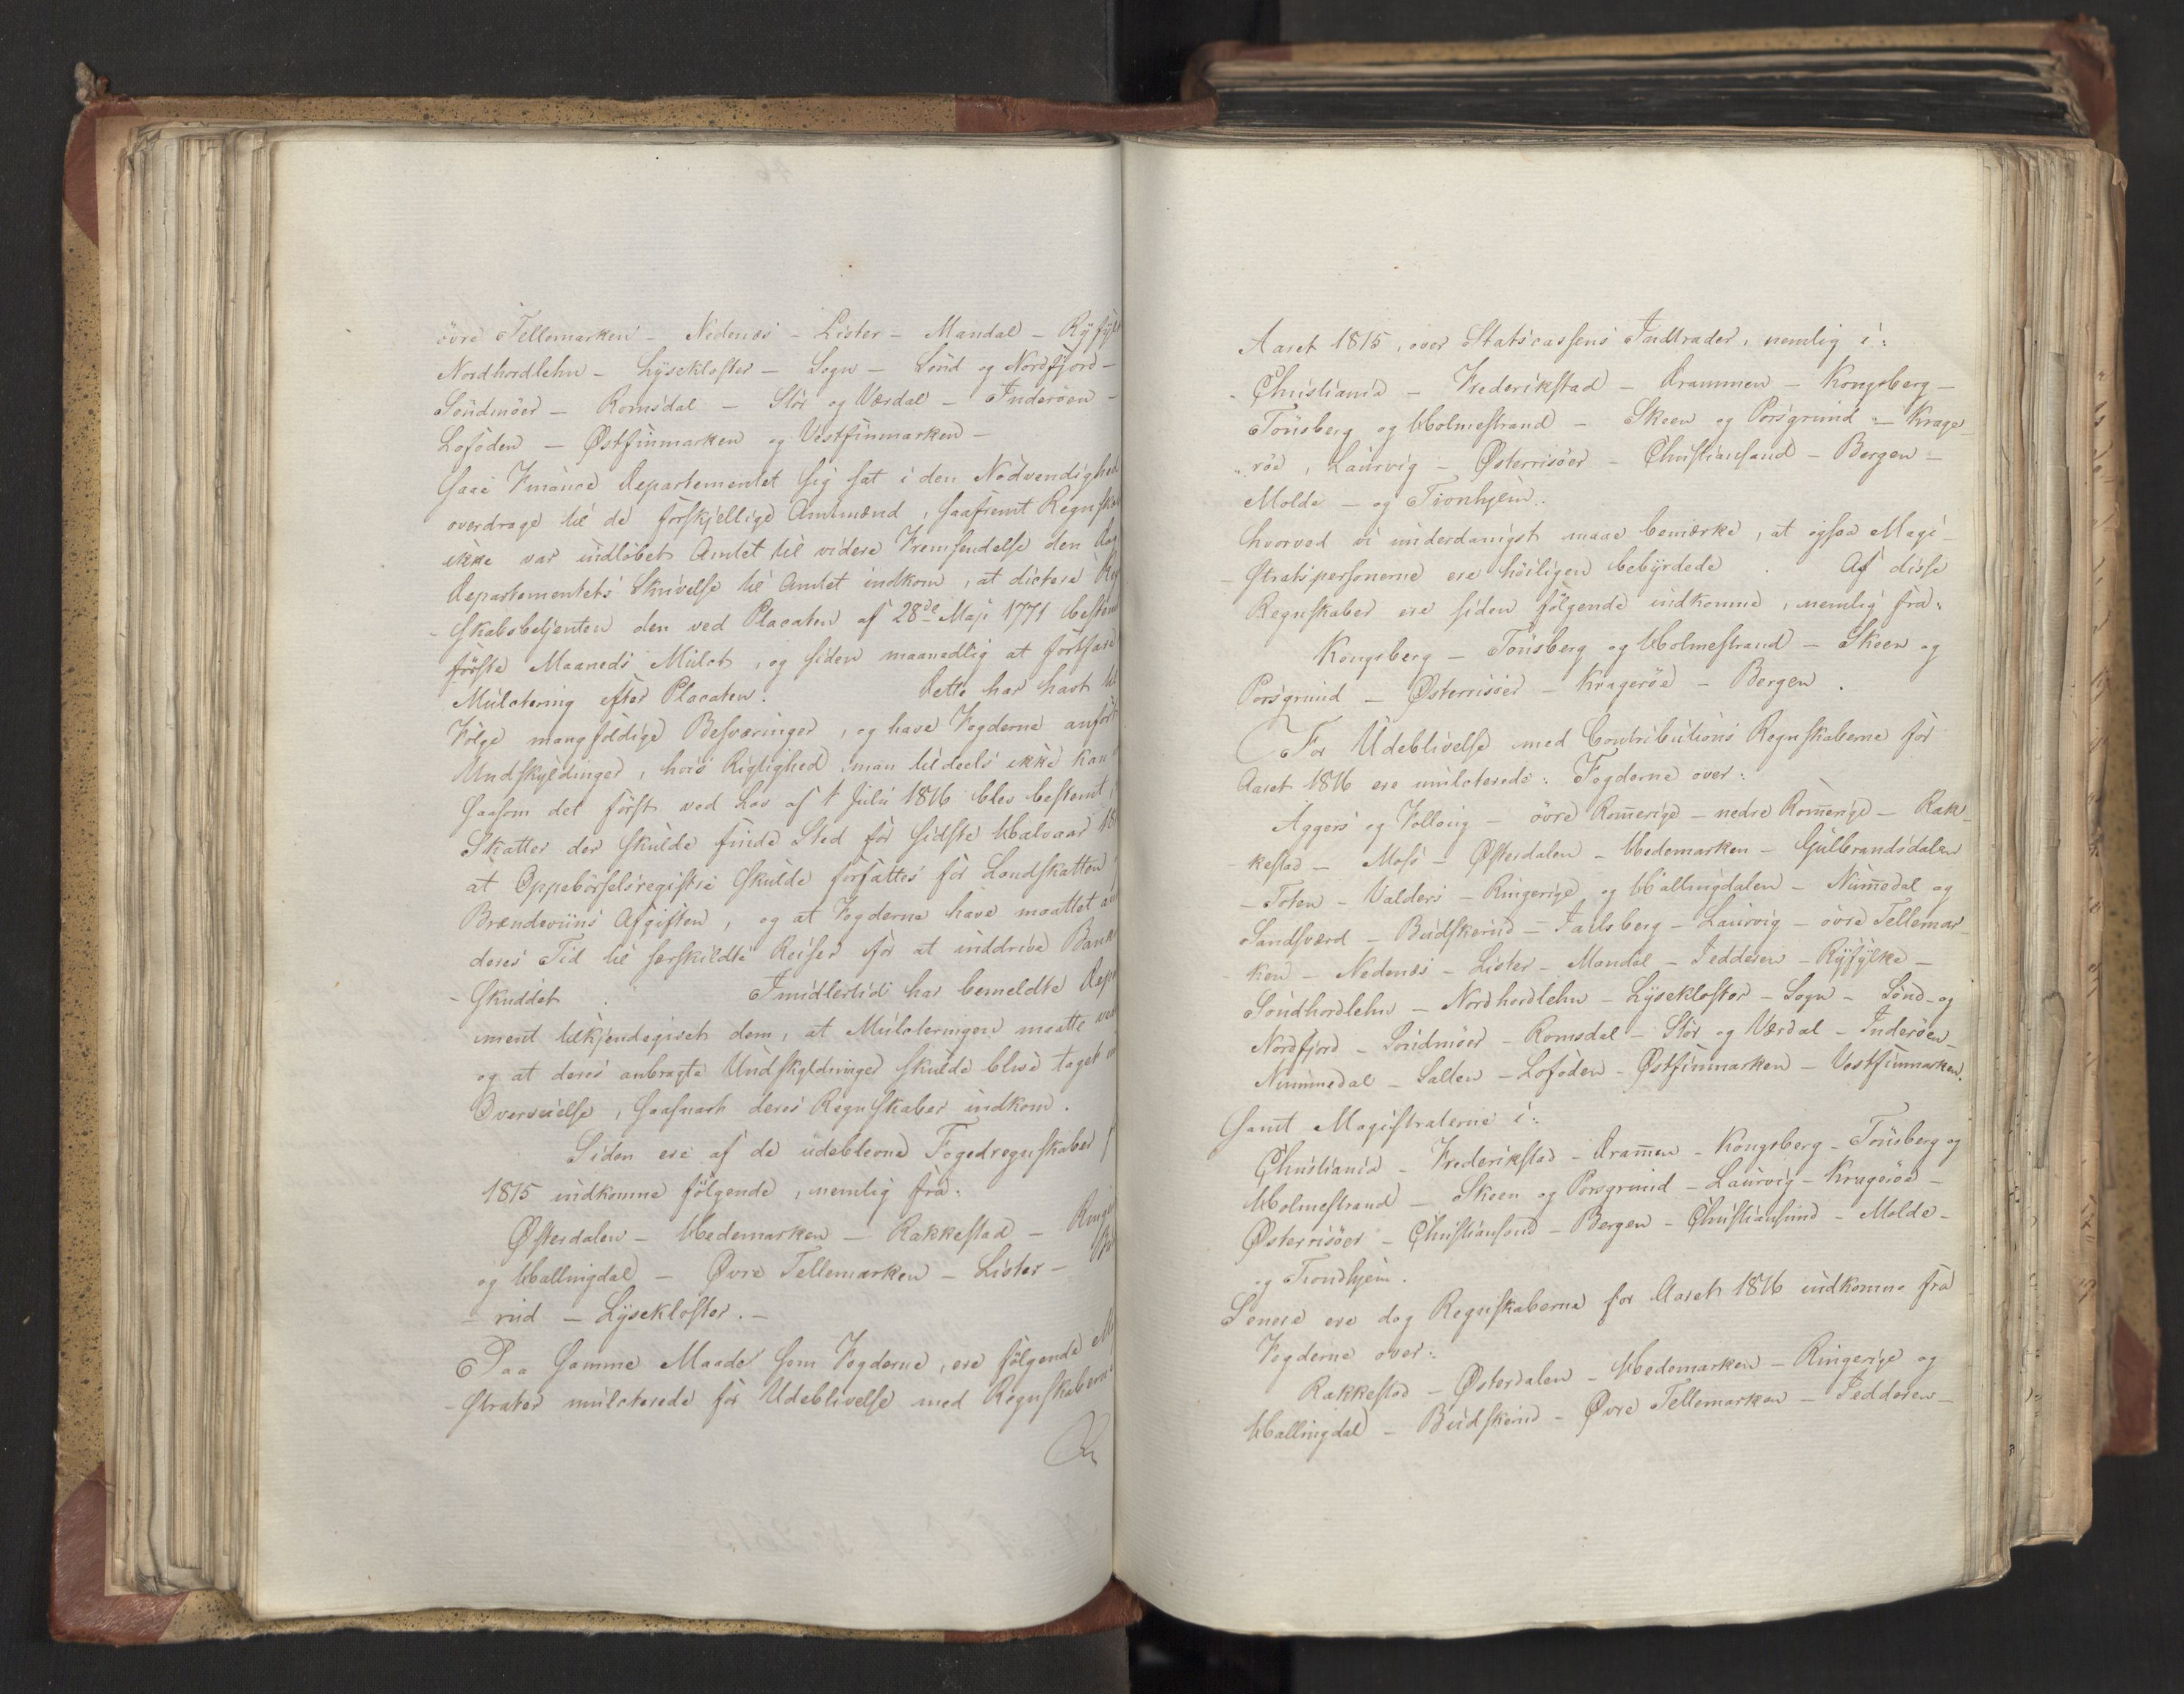 övre Tellemarken - Nedenæs - Lister - Mandal - Ryfyl
Nordhordlehn - Lysekloster - Sogn - Sönd og Nordfjord -
Söndmöer - Romsdal - Stör og Værdal - Inderöen -
Lofoden - Østfinmarken og Vestfinmarken -
saae Finance Departementet sig sat i den Nödvendighed
overdrage til de forskjellige Amtmænd, saafremt Regnska
ikke var indløbet Amtet til videre Fremsendelse den Dag
Departementets Skrivelse til Amtet indkom, at dictere Reg
- skabsbetjenten den ved Placaten af 28de Maji 1771 bestem
förste Maaneds Mulct, og siden maanedlig at fortfare
Mulctering efter Placaten. Dette har havt til
Fölge mangfoldige Besværinger, og have Fogderne anfört
Undskyldinger, hvis Rigtighed man tildeels ikke kan
saasom det först ved Lov af 1 Julii 1816 blev bestemt,
Skatter der skulde finde Sted for sidste Halvaar 18
at Oppebörselsregistre skulde forfattes for Landskatten
Brændeviins Afgiften, og at Fogderne have maattet an
deres Tid til særskildte Reiser for at inddrive Bank
- skuddet. Imidlertid har bemeldte Dep
ment tilkjendegivet dem, at Mulcteringen maatte ved
og at deres anbragte Undskyldninger skulde blive taget i
Overveielse, saasnart deres Regnskaber indkom.
Siden ere af de udeblevne Fogedregnskaber f
1815 indkomne fölgende, nemlig fra:
Østerdalen - Hedemarken - Rakkestad - Ringe
og Hallingdal - Øvre Tellemarken - Lister -
- rud - Lysekloster. -
Paa samme Maade som Fogderne, ere fölgende Ma
- strater mulcterede for Udeblivelse med Regnskaberne
Aaret 1815, over Statscassens Indtrader, nemlig i:
- Christiania - Frederikstad - Drammen - Kongsberg -
Tönsberg og Holmestrand - Skeen og Porsgrund - Krage-
röe, Laurvig - Østerrisöer - Christiansand - Bergen -
Molde - og Tronhjem.
hvorved vi underdanigst maae bemærke, at ogsaa Magi-
- stratspersonerne ere höiligen bebyrdede. Af disse
Regnskaber ere siden fölgende indkomne, nemlig fra:
Kongsberg - Tönsberg og Holmestrand - Skeen og
Porsgrund - Østerrisöer - Kragerøe - Bergen.
For Udeblivelse med Contributions Regnskaberne for
Aaret 1816 ere mulcterede: Fogderne over:
Aggers og Folloug - övre Rom̄erige - nedre Rom̄erige - Rak-
kestad - Moss - Østerdalen - Hedemarken - Gulbrandsdalen
- Toten - Valders - Ringerige og Hallingdalen - Num̄edal og
Sandsværd - Budskerud - Jarlsberg - Laurvig - övre Tellemar-
ken - Nedenæs - Lister - Mandal - Jedderen - Ryfylke -
Söndhordlehn - Nordhordlehn - Lysekloster - Sogn - Sönd- og
Nordfjord - Söndmöer - Romsdal - Stör og Værdal - Inderöen -
Nummedal - Salten - Lofoden - Østfinmarken - Vestfinmarken.
samt Magistraterne i:
Christiania - Frederikstad - Dram̄en - Kongsberg - Tönsberg og
Holmestrand - Skeen og Porsgrund - Laurvig - Kragerøe -
Østerrisöer - Christiansand - Bergen - Christiansund - Molde -
og Trondhjem.
Senere ere dog Regnskaberne for Aaret 1816 indkomne fra
Fogderne over:
Rakkestad - Østerdalen - Hedemarken - Ringerige og
Hallingdal - Budskerud - Øvre Tellemarken - Jedderen -